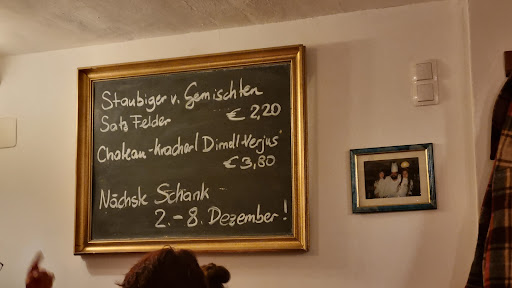 Staubiger v. Gemischten
Satz Felder € 2,20
Chateau-Kracherl Dirndl-Verjus
€ 3,80
Nächste Schank
2. - 8. Dezember!